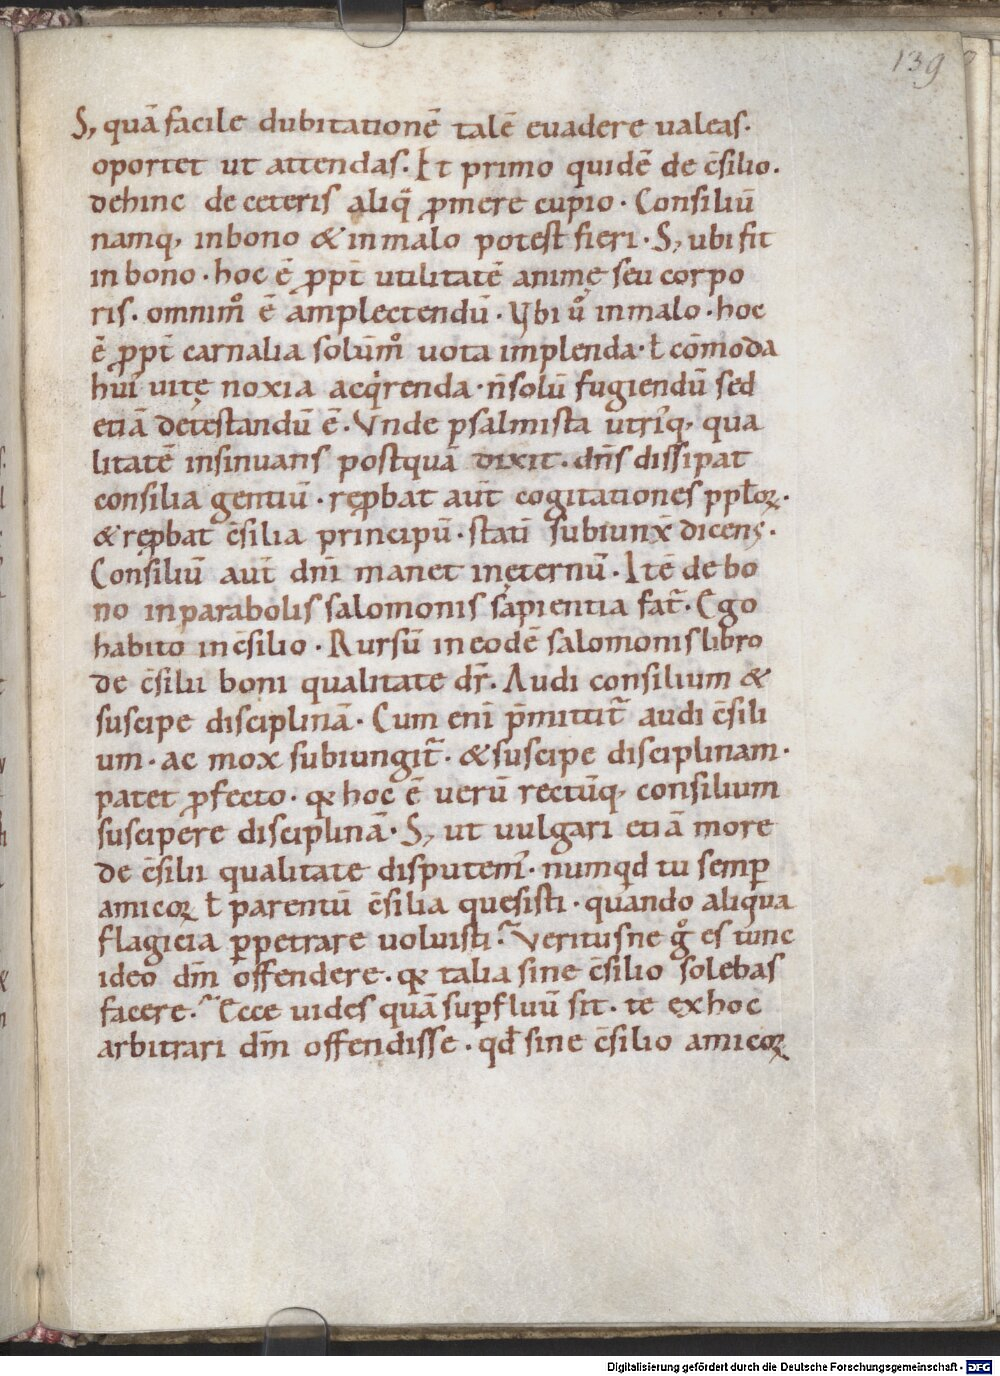 139
S; quā facile dubitationē talē euadere ualeas·
oportet ut attendas· Et primo quidē de c̄silio·
dehinc de ceteris aliq̄ ꝓmere cupio· Consiliū
namq; in bono & in malo potest fieri· S; ubi fit
in bono· hoc ē ꝓpt̄ utilitatē animę seu corpo
ris· omnim̊ ē amplectendū· Vbi ů in malo· hoc
ē ꝓpt̄ carnalia solūm̊ uota implenda· ł cōmoda
hui᾽ uitę noxia acq̇renda· n̄ solū fugiendū sed
etiā detestandū ē· Vnde psalmista utri᾽q; qua
litatē insinuans postquā dixit· dn̄s dissipat
consilia gentiū· reꝓbat aut̄ cogitationes pplōꝝ·
& reꝓbat c̄silia principū· stati subiunx̄ dicens·
Consiliū aut̄ dn̄i manet in ęternū· Itē de bo
no in parabolis salomonis sapientia fat᷑· Ego
habito in c̄silio· Rursū in eodē salomonis libro
de c̄silii boni qualitate dr̄· Audi consilium &
suscipe disciplinā· Cum eni p̄mittit᷑ audi c̄sili
um· ac mox subiungit᷑· & suscipe disciplinam·
patet ꝓfecto· qꝛ hoc ē uerū rectūq; consilium
suscipere disciplinā· S; ut uulgari etiā more
de c̄silii qualitate disputem᾽· numqd tu semꝑ
amicoꝝ ł parentū c̄silia quesisti· quando aliqua
flagicia ꝑpetrare uoluisti? Veritusne g̊ es tunc
ideo dm̄ offendere· qꝛ talia sine c̄silio solebas
facere? Ecce uides quā suꝑfluū sit· te ex hoc
arbitrari dm̄ offendisse· qđ sine c̄silio amicoꝝ
Digitalisierung gefördert durch die Deutsche Forschungsgemeinschaft - DFG